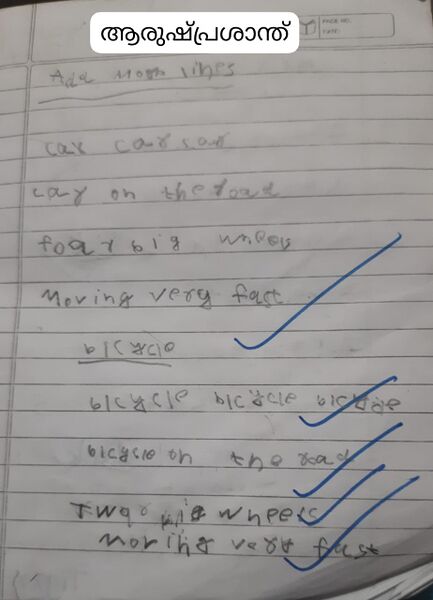 ആരുഷ്പ്രശാന്ത്
PAGE NO.
DATE:
Add More lines
car car car
car on the road
foar big wheels
Moving very fast
bicycle
bicycle bicycle bicycle
bicycle on the road
Twar big wheels
Moving very fast